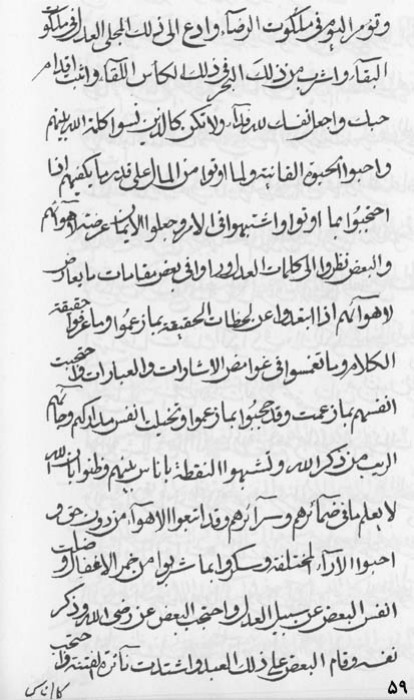 وتؤمر اليوم في ملكوت الرضآء وادع الى ذلك المجلى العدل في ملكوت
البقآء واشرب من ذلك البحر في ذلك الكأس اللقآء واثبت اقدام
حبك واجعل نفسك لله فدآء ولا تكن كالذين نسوا كلمة الله بينهم
واحبوا الحيوة الفانية ولما اوتوا من المال على قدر ما يكفيهم اذا
احتجبوا بما اوتوا واشتبهوا في الامر وجعلوا الايمان عرضة اهوآئهم
والبعض نظروا الى كلمات العدل وراوا في بعض مقامات ما يعارض
لاهوآئهم اذا ابتعدوا عن لحظات الحقيقة بما زعموا وما عرفوا حقيقة
الكلام وما تغمسوا في غوامض الاشارات والعبارات واحتجبت
انفسهم بما زعمت وقد حجبوا بما زعموا وتخيلت انفس
الريب من ذكر الله وتشبهوا النقطة باناس بينهم وظنوا بان الله
لا يعلم ما في ضمآئرهم وسرآئرهم وقد اتبعوا الاهوآء من دون حق و
احبوا الارآء المختلفة وسكروا بما شربوا من خمر الاغفال وضلت
انفس البعض عن سبيل العدل واحتجب البعض عن رضى الله وذكر
نفسه وقام البعض على ذلك العبد واشتدت نآئرة الفتنة واحتجب
٥٩
كل اناس